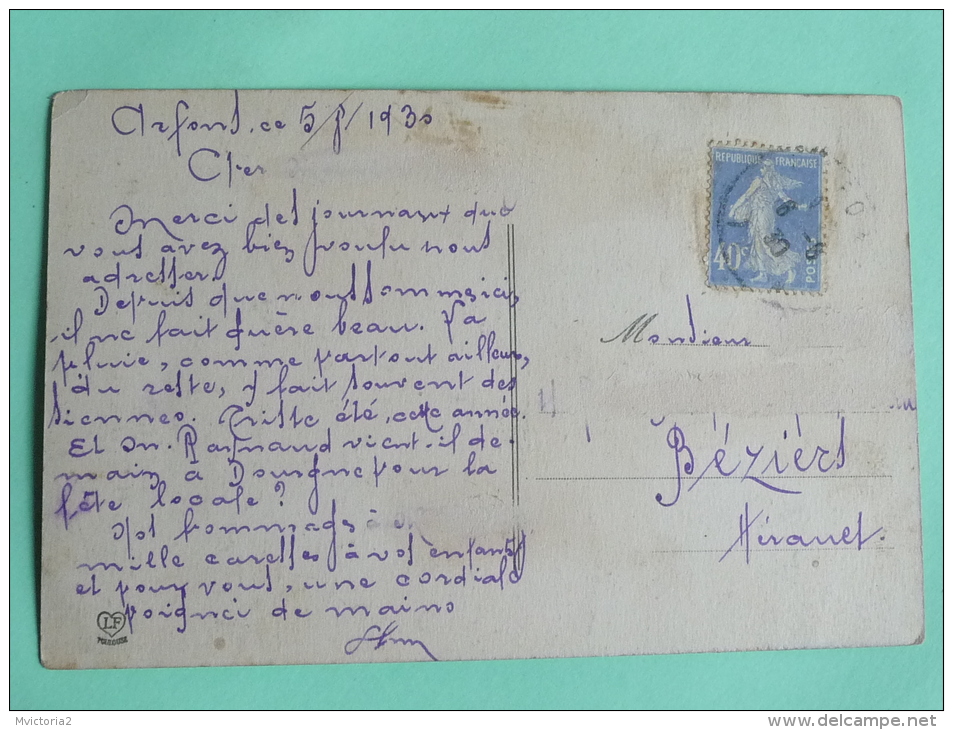 Arfons, ce 5/8/1930
Cher
Merci des journaux que
vous avez bien voulu nous
adresser.
Depuis que nous sommes ici,
il ne fait guère beau. La
pluie, comme partout ailleurs,
du reste, y fait souvent des
siennes. Triste été, cette année.
Et Mr. Raynaud vient-il de-
main à Dourgne pour la
fête locale ?
Mes hommages à
mille caresses à vos enfants
et pour vous, une cordiale
poignée de mains
LF
TOULOUSE
REPUBLIQUE FRANÇAISE
40c
POSTES
Monsieur
Béziers
Hérault.
Mvictoria2
www.delcampe.net